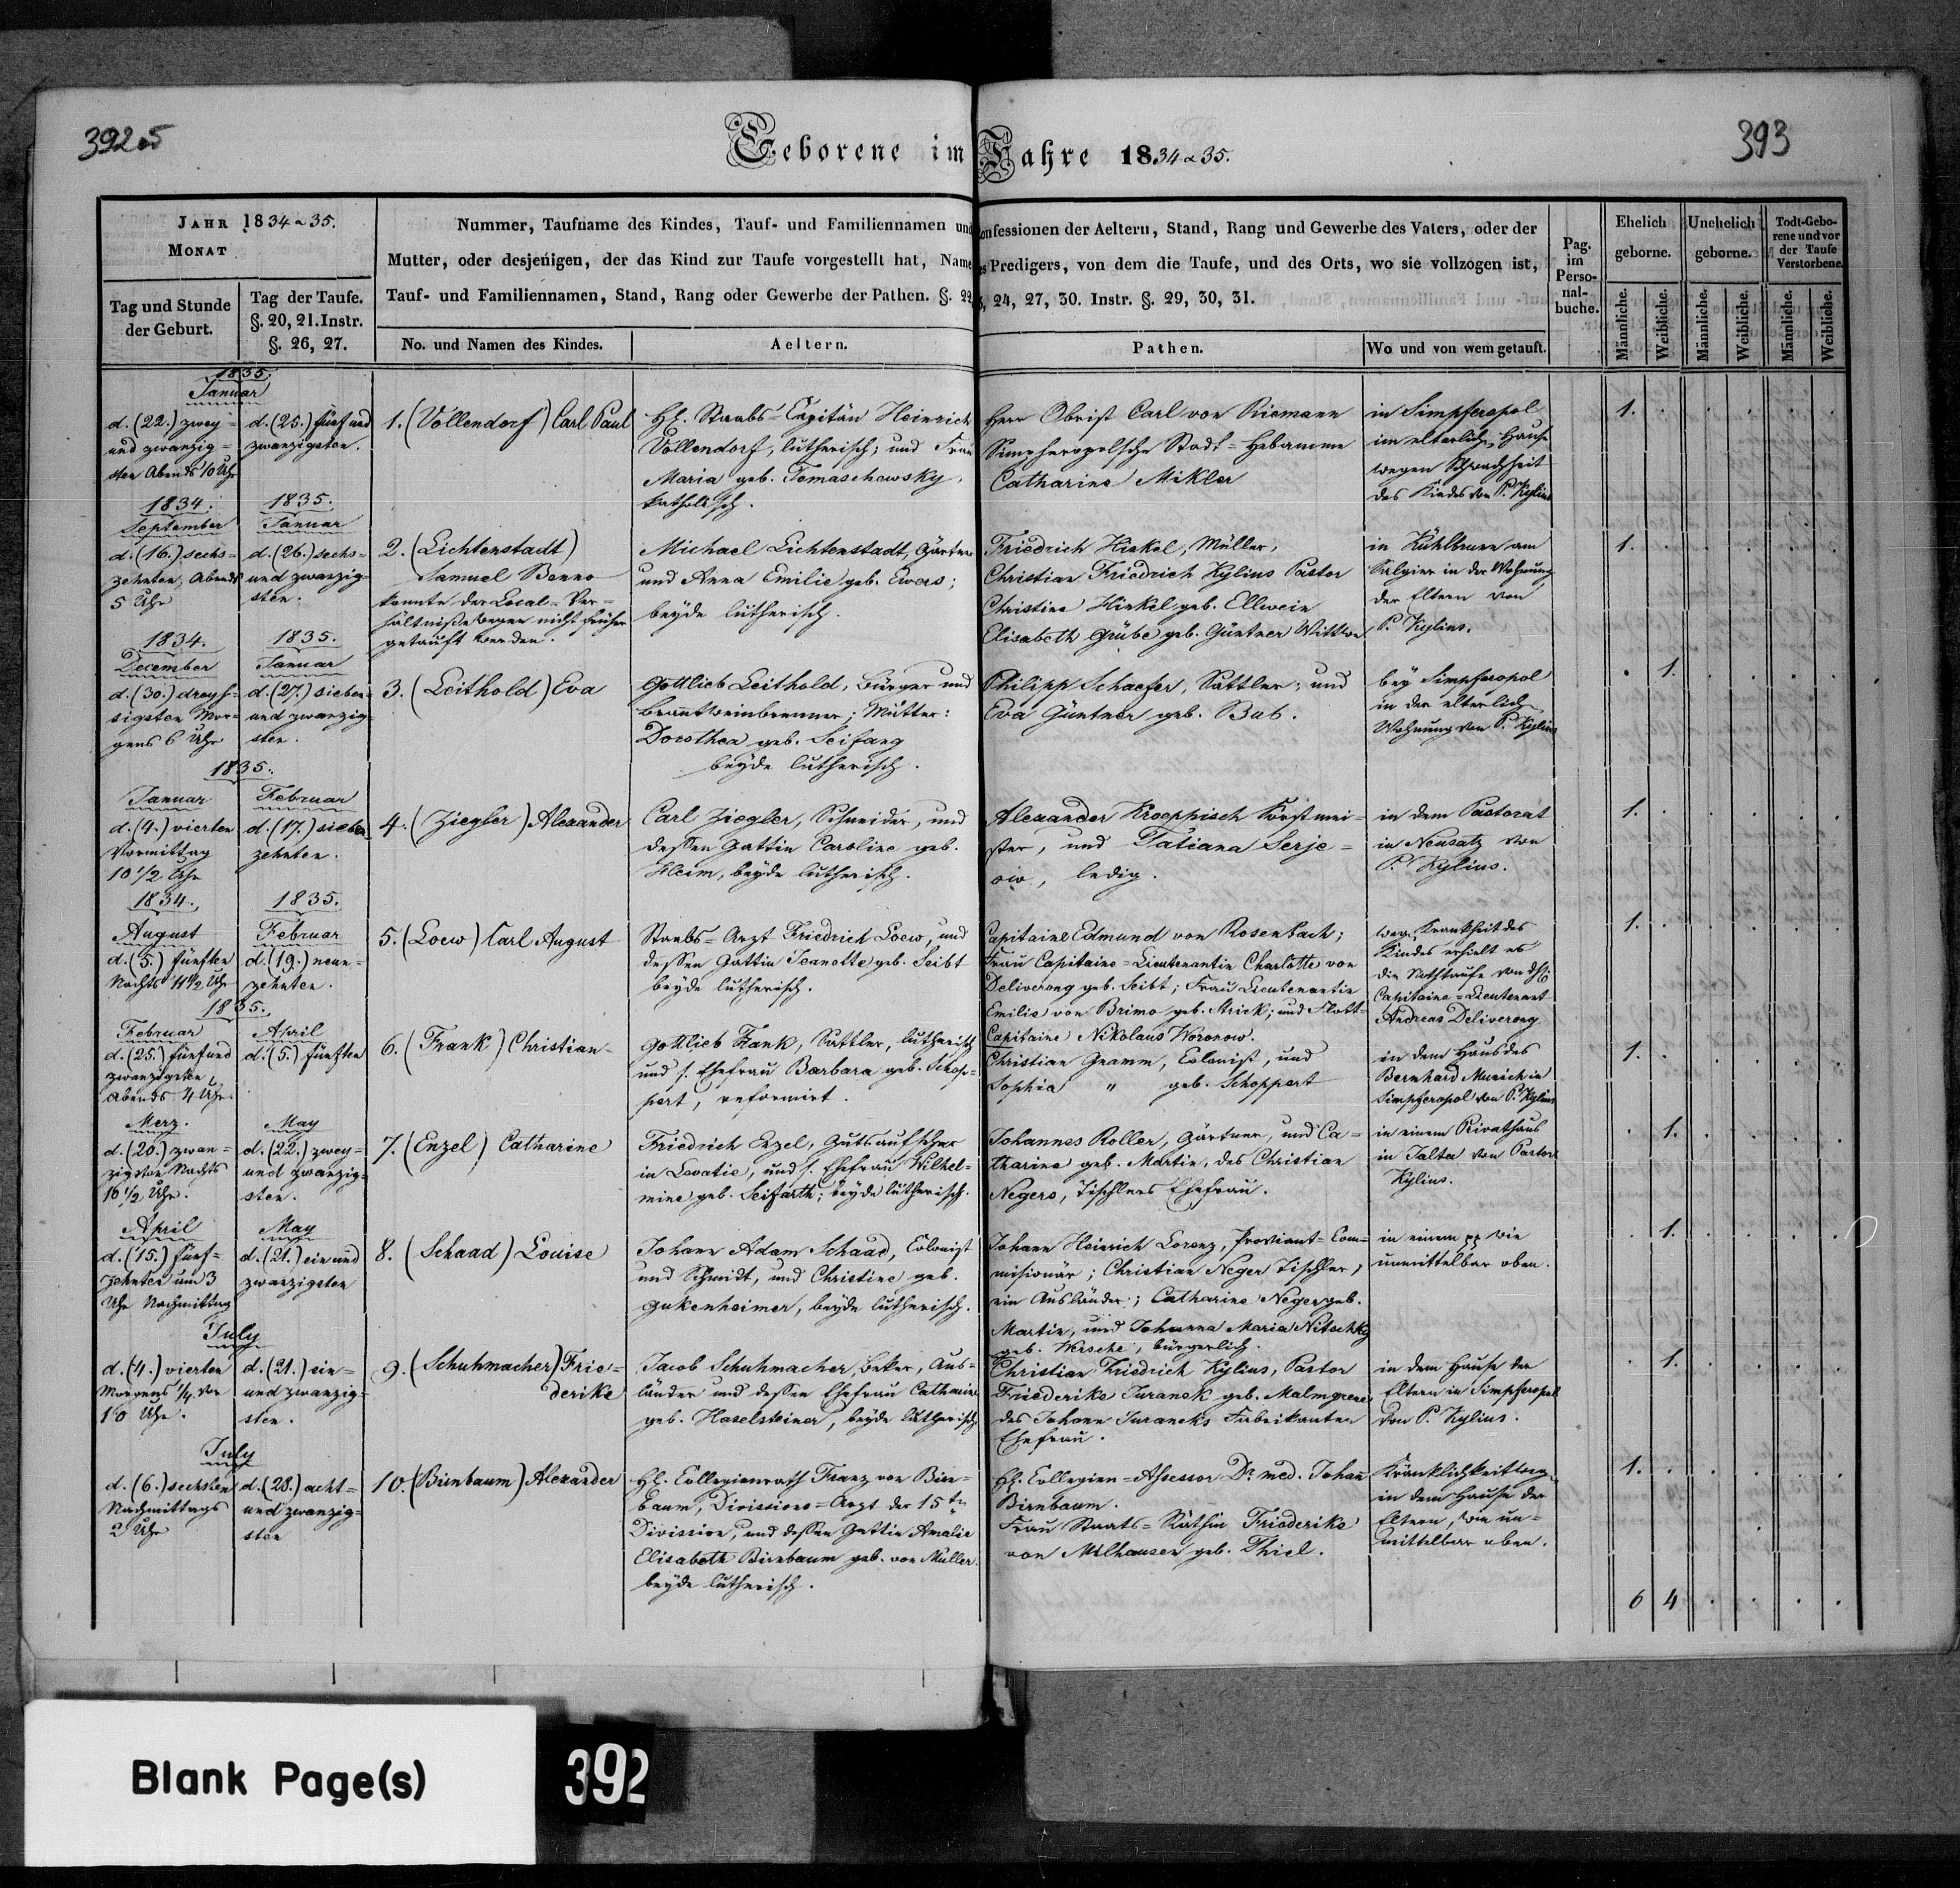 392 o5
393
Geborene im Jahre 1834 & 35.
JAHR 1834 & 35.
MONAT
Tag und Stunde
der Geburt.
Tag der Taufe.
§. 20, 21. Instr.
§. 26, 27.
Nummer, Taufname des Kindes, Tauf- und Familiennamen und Confessionen der Aeltern, Stand, Rang und Gewerbe des Vaters, oder der
Mutter, oder desjenigen, der das Kind zur Taufe vorgestellt hat, Name des Predigers, von dem die Taufe, und des Orts, wo sie vollzogen ist,
Tauf- und Familiennamen, Stand, Rang oder Gewerbe der Pathen. §. 23, 24, 27, 30. Instr. §. 29, 30, 31.
No. und Namen des Kindes.
Aeltern.
Pathen.
Wo und von wem getauft.
Pag.
im
Perso-
nal-
buche.
Ehelich
geborne.
Unehelich
geborne.
Todt-Gebo-
rene und vor
der Taufe
Verstorbene.
Männliche.
Weibliche.
Männliche.
Weibliche.
Männliche.
Weibliche.
1835.
Januar
d. (22.) zwey-
und zwanzig-
sten Abends 10 Uhr
d. (25.) fünf und
zwanzigsten.
1. (Vollendorf) Carl Paul
H. Staabs-Capitän Heinrich
Vollendorf, lutherisch; und Frau
Maria geb. Tomaschewsky,
katholisch.
Herr Obrist Carl von Riemann
Simpheropolsche Stadt-Hebamme
Catharina Mikler
in Simpferopol
im elterlichen Hause
wegen Schwachheit
des Kindes von P. Kylius
1.
1834.
September
1835.
Januar
d. (16.) sechs-
zehnten, Abends
5 Uhr
d. (26.) sechs-
und zwanzig-
sten.
2. (Lichtenstadt)
Samuel Benno
konnte der Local-Ver-
hältnisse wegen nicht früher
getauft werden.
Michael Lichtenstadt, Gärtner
und Anna Emilie geb. Ewers;
beyde lutherisch.
Friedrich Hinkel, Müller,
Christian Friedrich Kylius Pastor
Christine Hinkel geb. Ellwein
Elisabeth Grübe geb. Güntner Wittwe
in Kühlbrunn am
Salgier in der Wohnung
der Eltern von
P. Kylius.
1.
1834.
December
1835.
Januar
d. (30.) dreyß-
sigsten Mor-
gens 6 Uhr
d. (27.) sieben-
und zwanzig-
sten.
3. (Leithold) Eva
Gottlieb Leithold, Bürger und
Branntweinbrenner; Mutter:
Dorothea geb. Seifang
beyde lutherisch.
Philipp Schaefer, Sattler; und
Eva Güntner geb. Bub.
bey Simpferopol
in der elterlichen
Wohnung von P. Kylius
1.
1835.
Januar
Februar
d. (4.) vierten
Vormittag
10 1/2 Uhr
d. (17.) sieben
zehnten.
4. (Ziegler) Alexander
Carl Ziegler, Schneider, und
dessen Gattin Caroline geb.
Heim, beyde lutherisch.
Alexander Kroeppisch Forstmei-
ster, und Tatiana Serje-
ow, ledig.
in dem Pastorat
in Neusatz von
P. Kylius.
1.
1834.
August
1835.
Februar
d. (5.) fünften
Nachts 11 1/2 Uhr
d. (19.) neun-
zehnten.
5. (Loew) Carl August
Staabs-Arzt Friedrich Loew, und
dessen Gattin Jeanotte geb. Seibt
beyde lutherisch.
Capitaine Edmund von Rosenbach;
Frau Capitaine-Lieutenantin Charlotte von
Deliverong geb. Seibt; Frau Lieutenantin
Emilie von Brimo geb. Strick; und Flott-
Capitaine Nikolaus Woronow.
weg. Krankheit des
Kindes erhielt es
die Nothtaufe von
Capitaine-Lieutenant
Andreas Deliverong
1.
1835.
Februar
April
d. (25.) fünf und
zwanzigsten
Abends 4 Uhr
d. (5.) fünften
6. (Frank) Christian
Gottlieb Frank, Sattler, lutherisch
und s. Ehefrau Barbara geb. Schop-
pert, reformirt.
Christian Gramm, Colonist, und
Sophia " geb. Schoppert
in dem Haus des
Bernhard Munich in
Simpferopol von P. Kylius
1.
Merz.
May
d. (20.) zwan-
zigsten Nachts
10 1/2 Uhr.
d. (22.) zwey-
und zwanzig-
sten.
7. (Enzel) Catharine
Friedrich Enzel, Gutsaufseher
in Lovatie, und s. Ehefrau Wilhel-
mine geb. Seifarth; beyde lutherisch.
Johannes Roller, Gärtner, und Ca-
tharina geb. Martin, des Christian
Negers, Tischlers Ehefrau.
in einem Privathaus
in Jalta von Pastor
Kylius.
1.
April
May
d. (15.) fünf-
zehnten um 3
Uhr Nachmittag
d. (21.) ein und
zwanzigsten
8. (Schaad) Louise
Johann Adam Schaad, Colonist
und Schmidt, und Christine geb.
Gukenheimer, beyde lutherisch.
Johann Heinrich Lorenz, Proviant-Com-
misionär; Christian Neger Tischler,
ein Ausländer; Catharine Neger geb.
Martin, und Johanna Maria Nitschky
geb. Wersche, bürgerlich.
in einem pp wie
unmittelbar oben.
1.
July
d. (4.) vierten
Morgens 1/4 vor
10 Uhr.
d. (21.) ein-
und zwanzig-
sten.
9. (Schuhmacher) Frie-
derike
Jacob Schuhmacher, Beker, Aus-
länder und dessen Ehefrau Catharine
geb. Haselsteiner, beyde lutherisch
Christian Friedrich Kylius, Pastor
Friederike Juranek geb. Malmgreen
des Johann Juraneks Fabrikanten
Ehefrau.
in dem Hause der
Eltern in Simpferopel
von P. Kylius.
1.
July
d. (6.) sechsten
Nachmittags
2 Uhr
d. (28.) acht-
und zwanzig-
sten
10. (Birnbaum) Alexander
H. Collegienrath Franz von Birn-
baum, Divissions-Arzt der 15tn
Divission, und dessen Gattin Amalie
Elisabeth Birnbaum geb. von Müller.
beyde lutherisch.
H. Collegien-Assessor Dr. med. Johann
Birnbaum.
Frau Staats-Räthin Friederike
von Milhausen geb. Thiel.
Kränklichkeit wegen
in dem Hause der
Eltern, wie un-
mittelbar oben.
1.
6 4
Blank Page(s)
392